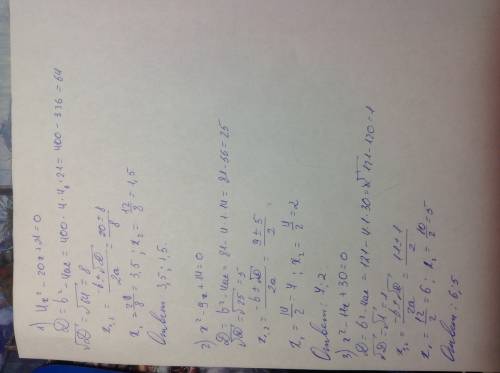 1) 4x² - 20x + 21 = 0
D = b² - 4ac = 400 - 4·4·21 = 400 - 336 = 64
√D = √64 = 8
x₁,₂ = -b ± √D / 2a = 20 ± 8 / 8
x₁ = 28/8 = 3,5 ; x₂ = 12/8 = 1,5
Ответ: 3,5 ; 1,5.
2) x² - 9x + 14 = 0
D = b² - 4ac = 81 - 4·1·14 = 81 - 56 = 25
√D = √25 = 5
x₁,₂ = -b ± √D / 2a = 9 ± 5 / 2
x₁ = 14/2 = 7 ; x₂ = 4/2 = 2
Ответ: 7; 2
3) x² - 11x + 30 = 0
D = b² - 4ac = 121 - 4·1·30 = 121 - 120 = 1
√D = √1 = 1
x₁,₂ = -b ± √D / 2a = 11 ± 1 / 2
x₁ = 12/2 = 6 ; x₂ = 10/2 = 5
Ответ: 6; 5